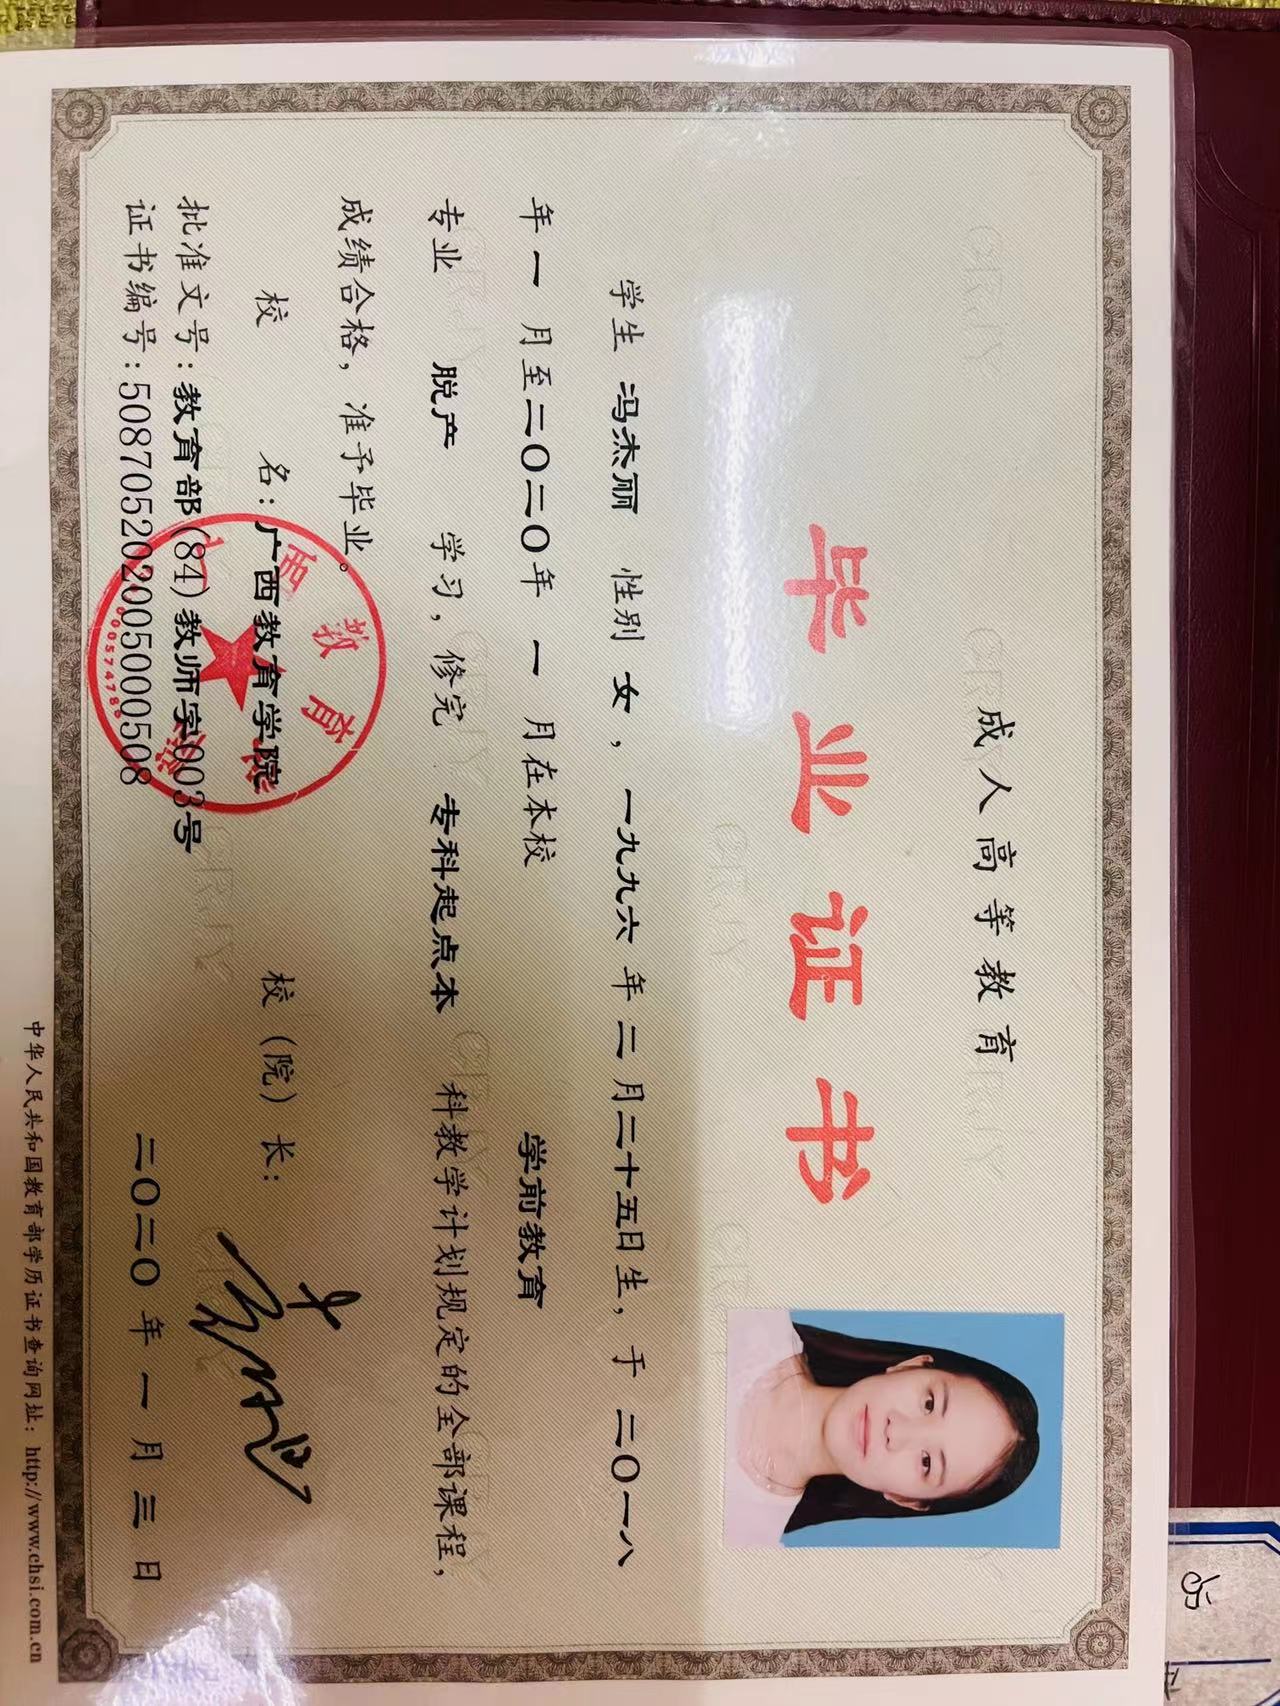 成人高等教育
毕业证书
学生 冯杰丽 性别 女，一九九六 年 二 月二十五日生，于 二〇一八
年 一 月至二〇二〇年 一 月在本校 学前教育
专业 脱产 学习，修完 专科起点本 科教学计划规定的全部课程，
成绩合格，准予毕业。
校 名：广西教育学院 校（院）长：
批准文号：教育部(84)教师字003号
证书编号：508705202005000508
二〇二〇 年 一 月 三 日
广西教育学院
中华人民共和国教育部学历证书查询网址：http://www.chsi.com.cn